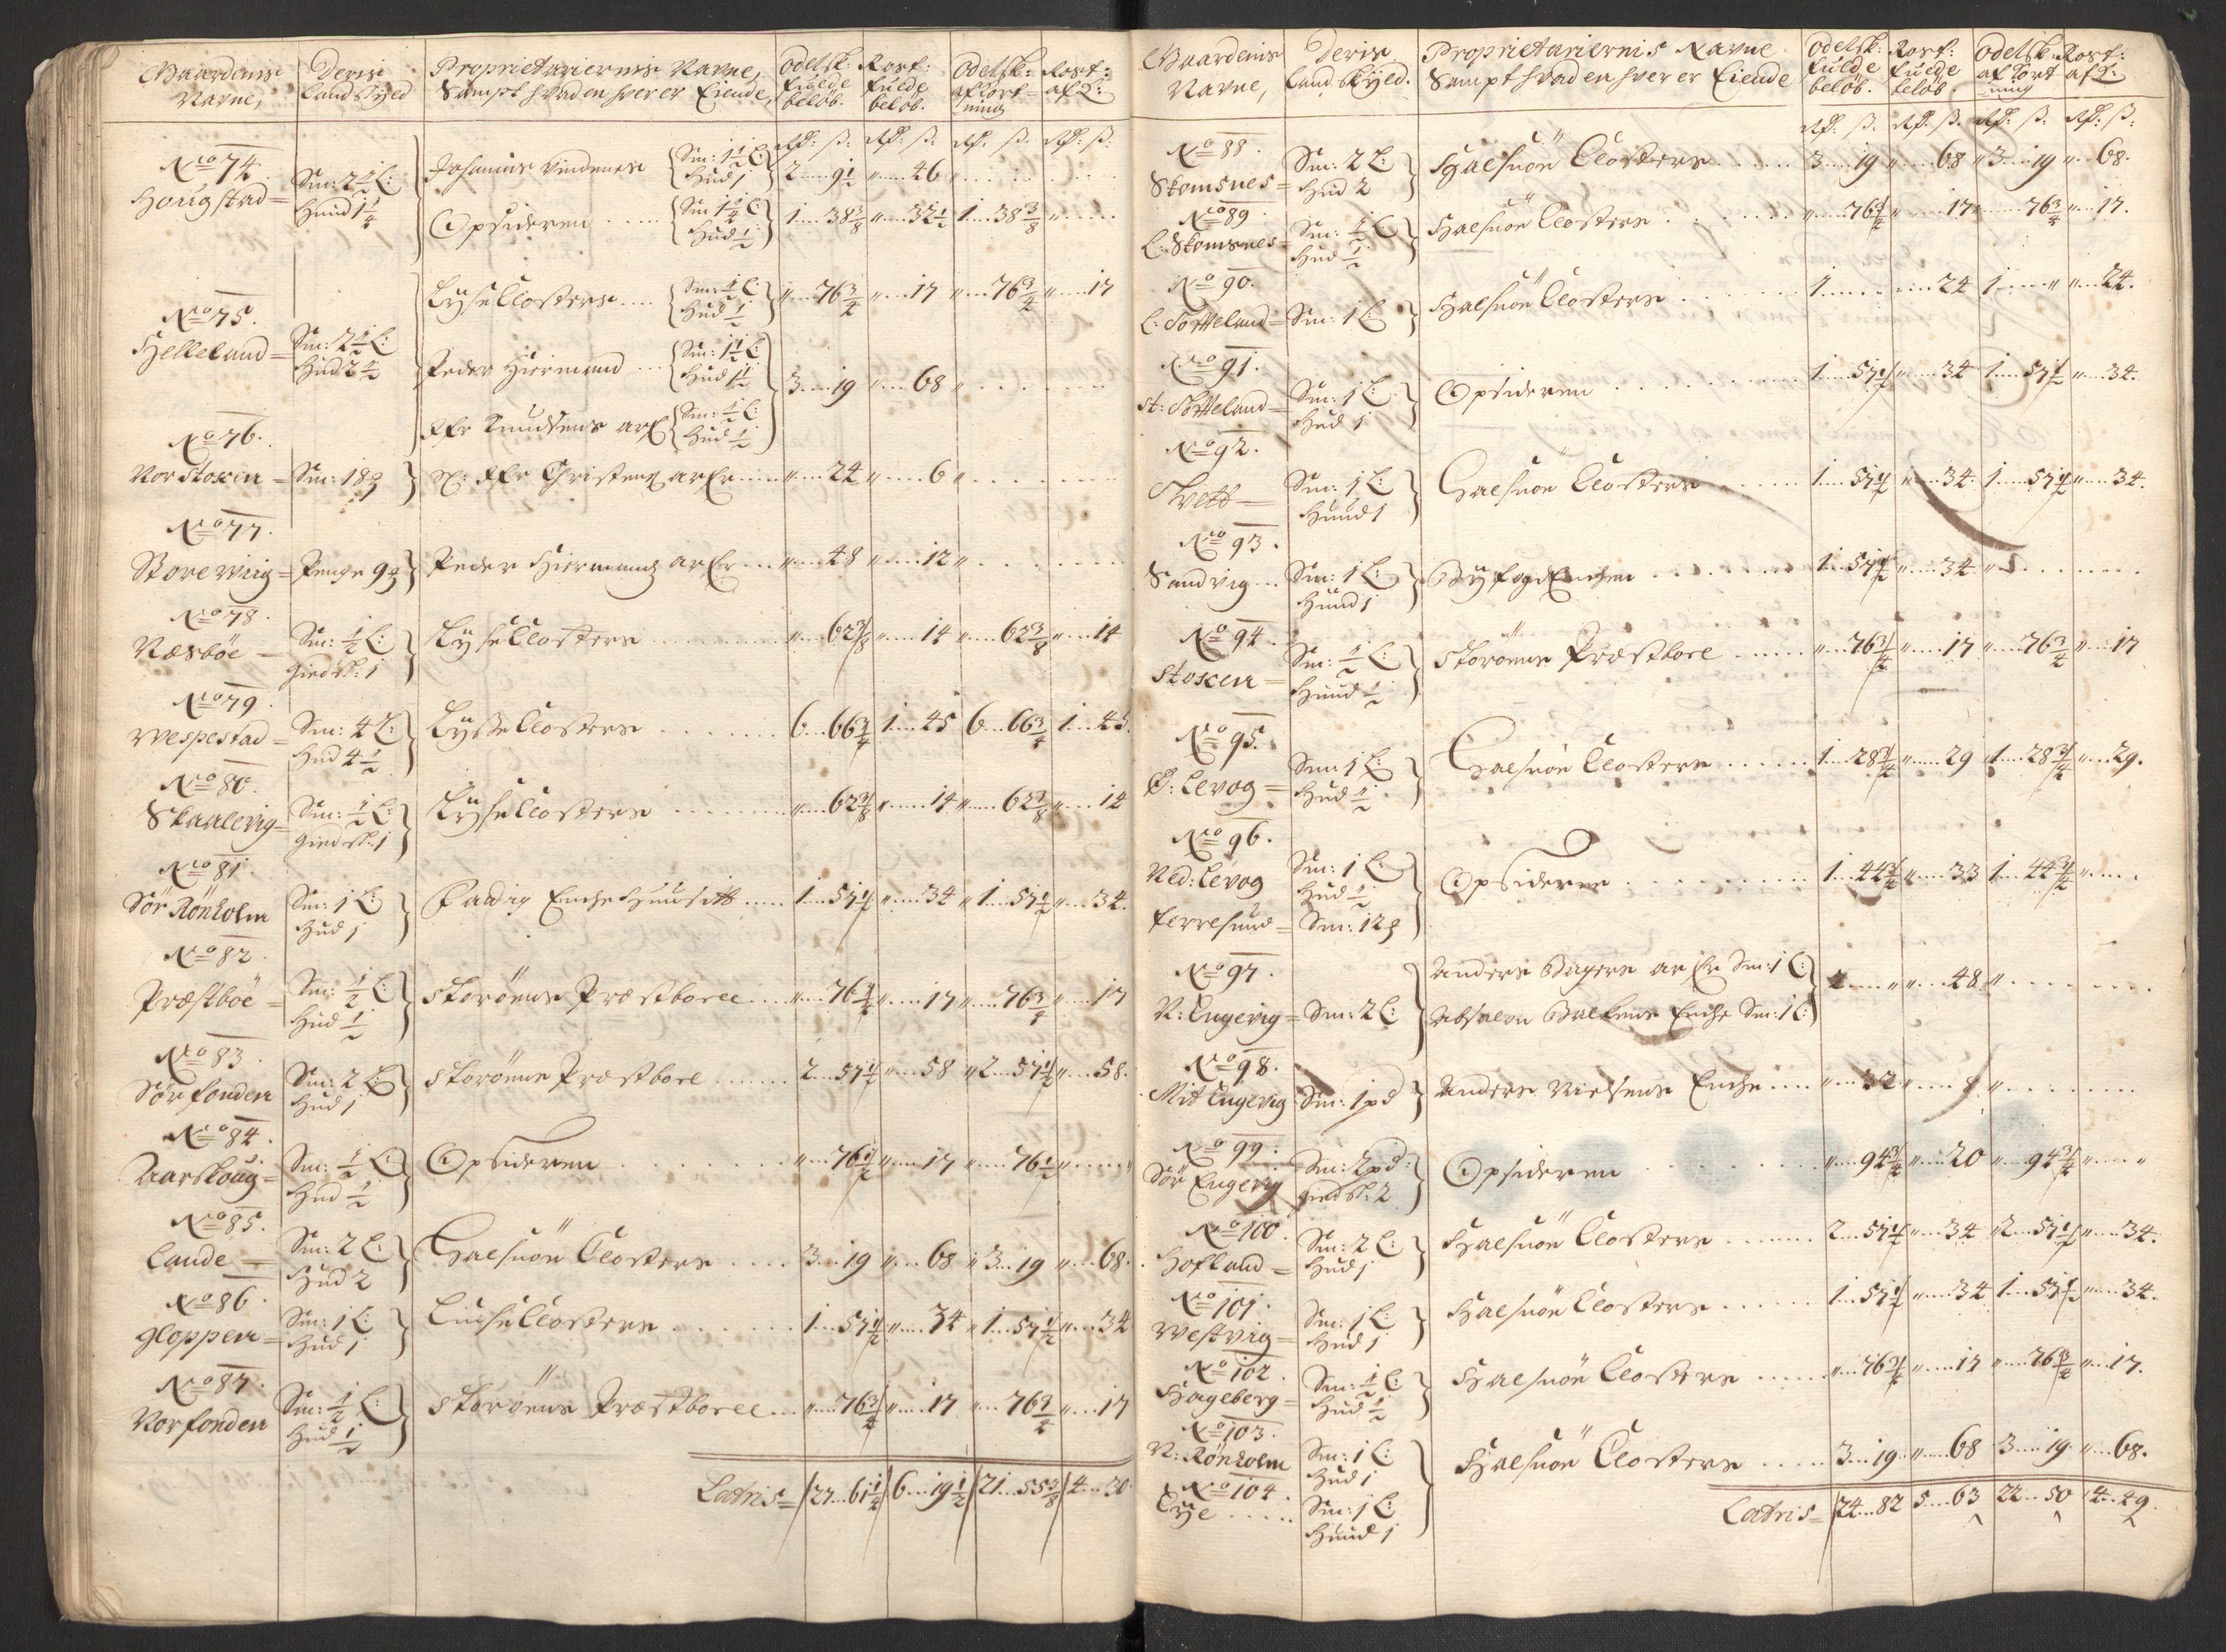 Gaardenis Navne,
Deris Land Skyld
Proprietariernis Navne, Sampt hvad en hver er Eiende,
Odelsk: fulde beløb.
Rost: fulde beløb.
Odelsk: afkortning
Rost: af d:
Rd: s: Rd: s. Rd. s. Rd: s:
No 74.
Hougstad = Sm: 2 1/2 L: Huud 1 1/4
Johannis Vindenes Sm: 1 1/2 L: Hud 1 2 .. 9 1/2 " .. 46 "
Opsideren Sm 1 1/4 L: Hud 1/2 1 .. 38 3/8 " .. 32 1/2 1 .. 38 3/8 "
No 75.
Helleland = Sm: 2 1/2 L: Hud 2 1/2
Lyse Closters Sm: 1/2 L Hud 1/2 " .. 76 3/4 " .. 17 " .. 76 3/4 " .. 17
Peder Hiermand Sm: 1 1/2 L: Hud 1 1/2 3 .. 19 " .. 68 "
Knudsens arf Sm: 1/2 L: Hud 1/2
No 76.
Nor Stoken = Sm: 18 Christens arfr " .. 24 " .. 6 "
No 77.
Store Wiig = Penge 9 Peder Hiermans arfr " .. 48 " .. 12 "
No 78.
Næsbøe = Sm: 1/2 L: Giedsk: 1 Lyse Closters " .. 62 3/8 " .. 14 " .. 62 3/8 " .. 14
No 79.
Wespestad = Sm: 4 L: Hud 4 1/2 Lyse Closters 6 .. 66 3/4 1 .. 45 6 .. 66 3/4 1 .. 45.
No 80.
Skaalevig = Sm: 1/2 L: Giedsk: 1 Lyse Closters " .. 62 3/8 " .. 14 " .. 62 3/8 " .. 14
No 81.
Sør Rönholm Sm: 1 L: Hud 1 Fattig Enche Huusitt 1 .. 57 1/2 " .. 34 " 1 .. 57 1/2 " .. 34.
No 82.
Præstböe = Sm: 1/2 L: Hud 1/2 Storöens Præstborll " .. 76 3/4 " .. 17 " .. 76 3/4 " .. 17
No 83.
Sör fonden Sm: 2 L: Hud 1 Storöens Præstborl 2 .. 57 1/2 " .. 58 " 2 .. 57 1/2 " .. 58.
No 84.
Aarskoug = Sm: 1/2 L: Hud 1/2 Opsideren " .. 76 1/2 " .. 17 " .. 76 1/2 "
No 85.
Lande = Sm: 2 L: Hud 2 Halsnön Closters 3 .. 19 " .. 68 " 3 .. 19 " .. 68.
No 86.
Gloppen = Sm: 1 L: Hud 1 Liuse Closters 1 .. 57 1/2 " .. 34 " 1 .. 57 1/2 " .. 34
No 87.
Nor fonden Sm: 1/2 L: Hud 1/2 Storöens Præstborll " .. 76 3/4 " .. 17 " .. 76 3/4 " .. 17
Lateris = 27 .. 61 1/4 6 .. 19 1/2 21 .. 55 3/8 4 .. 30
Gaardenis Navne,
Deris Land Skyld.
Proprietariernis Navne Sampt hvad en hver er Eiende
Odelsk: fulde beløb.
Rost: fulde beløb
Odelsk: afkortning
Rost: af d:
Rd: s. Rd. s. Rd: s. Rd: s:
No 88.
Stomsnes = Sm: 2 L: Hud 2 Halsnön Closters 3 .. 19 " .. 68 " 3 .. 19 " .. 68.
No 89.
L: Stomsnes = Sm: 1/2 L Hud 1/2 Halsnön Closters " .. 76 3/4 " .. 17 " .. 76 3/4 " .. 17.
No 90.
L: Sortteland = Sm: 1 L: Halsnön Closters 1 .. " .. 24 1 .. " " .. 24.
No 91.
St: Sortteland = Sm: 1 L: Hud 1 Opsideren 1 .. 57 1/2 " .. 34 1 .. 57 1/2 " .. 34.
No 92.
Tvett = Sm: 1 L: Huud 1 Halsnön Closters 1 .. 57 1/2 " .. 34. 1 .. 57 1/2 " .. 34.
No 93.
Sandvig Sm: 1 L: Huud 1 Byfogd Enchen 1 .. 57 1/2 " .. 34 "
No 94.
Stoken = Sm: 1/2 L: Huud 1/2 Storöens Præstborl " .. 76 3/4 " .. 17 " .. 76 3/4 " .. 17
No 95.
Ø: Levog = Sm: 1 L: Hud 1/2 Halsnön Closters 1 .. 28 3/4 " .. 29 1 .. 28 3/4 " .. 29.
No 96.
Ned: Levog Sm: 1 L: Hud 1/2 Opsideren 1 .. 44 3/4 " .. 33 1 .. 44 3/4 "
Ferresund = Sm: 12
No 97.
N: Engevig = Sm: 2 L: Anders Bagers arfr Sm: 1 L: 2 .. " " .. 48 "
Absalon Balkens Enche Sm: 1 L:
No 98.
Mit Engevig Sm: 1 pd Anders Nielsens Enche " .. 32 " .. 8 "
No 99.
Sör Engevig Sm: 2 pd: Giedsk: 2 Opsideren " .. 94 3/4 " .. 20 " .. 94 3/4 "
No 100.
Hofland = Sm: 2 L: Hud 1 Halsnön Closters 2 .. 57 1/2 " .. 34 2 .. 57 1/2 " .. 34.
No 101.
Westvig = Sm: 1 L: Hud 1 Halsnön Closters 1 .. 57 1/2 " .. 34 1 .. 57 1/2 " .. 34.
No 102.
Hageberg = Sm: 1/2 L: Hud 1/2 Halsnön Closters " .. 76 3/4 " .. 17 " .. 76 3/4 " .. 17.
No 103.
N: Rönholm Sm: 1 L: Hud 1 Halsnön Closters 3 .. 19 " .. 68 3 .. 19 " .. 68.
No 104.
Lye Sm: 1 L: Huud 1
Lateris = 24 .. 82 5 .. 63 22 .. 50 4 .. 49.